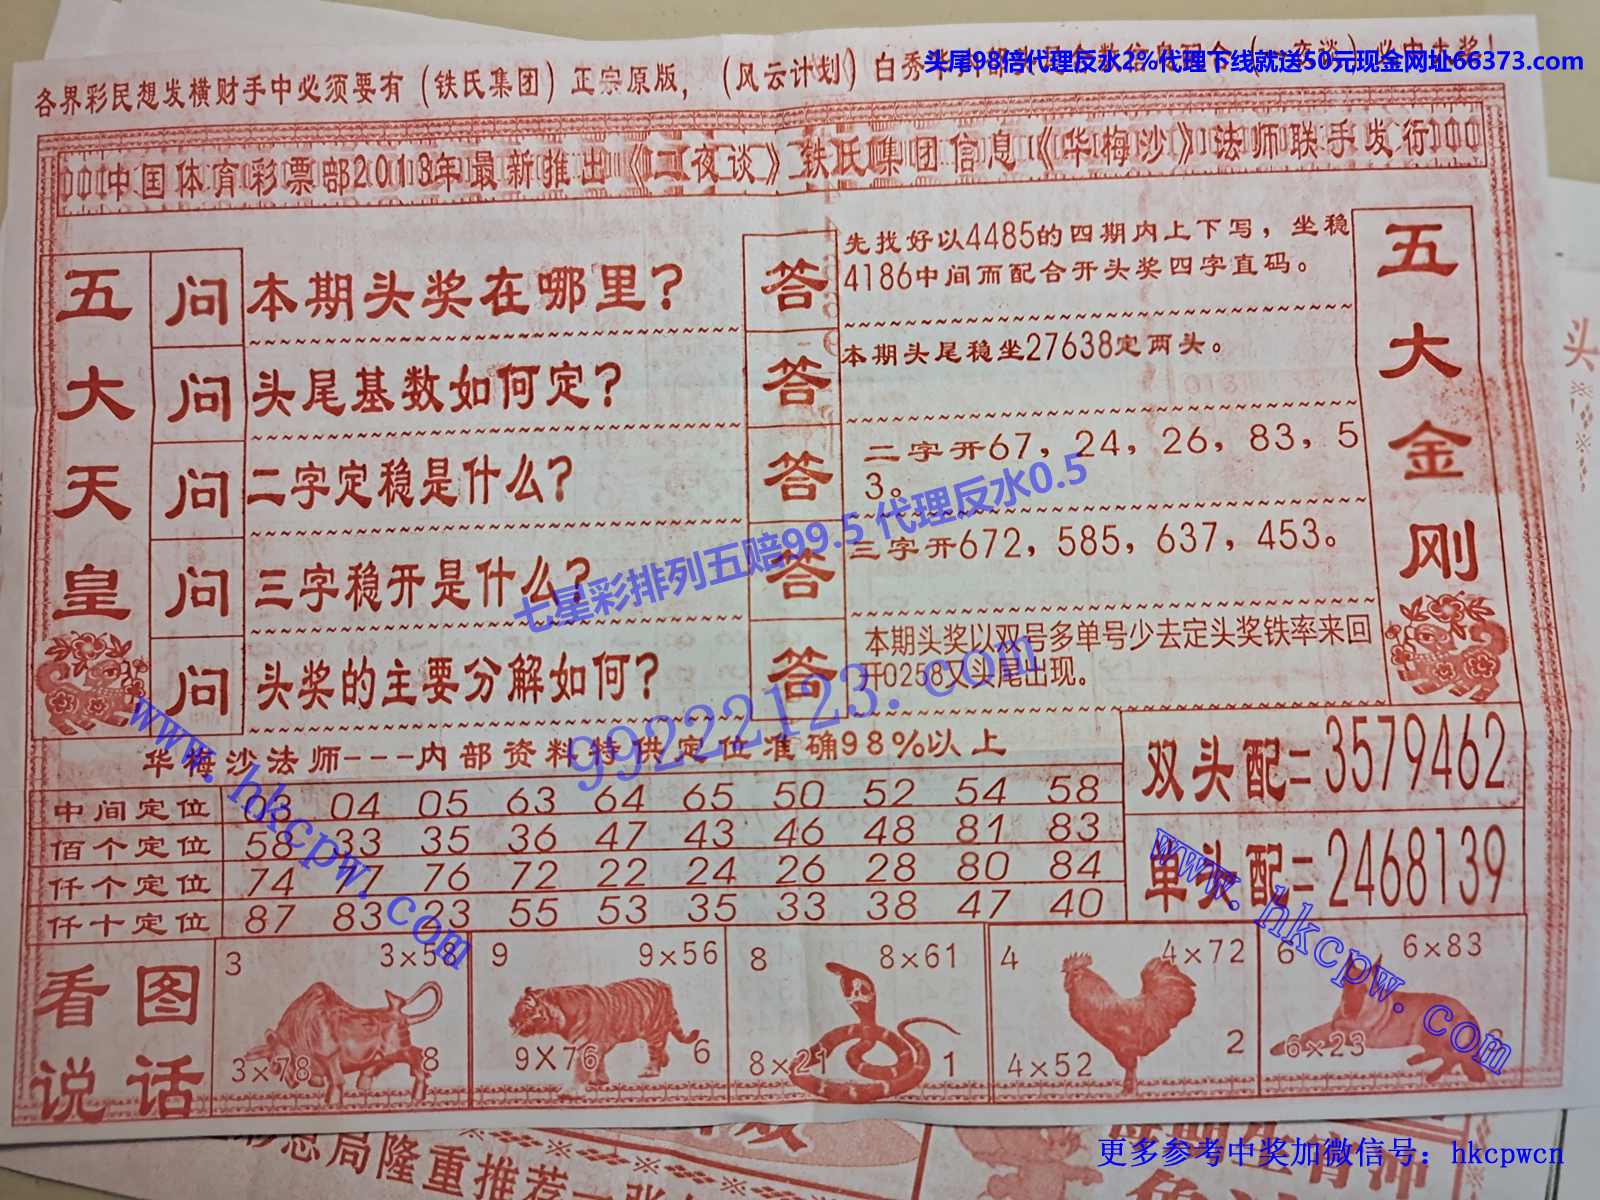 头尾98倍代理反水2%代理下线就送50元现金网址66373.com
各界彩民想发横财手中必须要有（铁氏集团）正宗原版，（风云计划）白秀
中国体育彩票部2013年最新推出《二夜谈》铁氏集团信息《华梅沙》法师联手发行
五大天皇
问 本期头奖在哪里？
答 先找好以4485的四期内上下写，坐稳
4186中间而配合开头奖四字直码。
问 头尾基数如何定？
答 本期头尾稳坐27638定两头。
问 二字定稳是什么？
答 二字开67，24，26，83，5
3。
问 三字稳开是什么？
答 三字开672，585，637，453。
问 头奖的主要分解如何？
答 本期头奖以双号多单号少去定头奖铁率来回
开0258又头尾出现。
五大金刚
七星彩排列五赔99.5 代理反水0.5
99222123.com
www.hkcpw.com
华梅沙法师---内部资料特供定位准确98%以上
中间定位 03 04 05 63 64 65 50 52 54 58
佰个定位 58 33 35 36 47 43 46 48 81 83
仟个定位 74 77 76 72 22 24 26 28 80 84
仟十定位 87 83 23 55 53 35 33 38 47 40
双头配=3579462
单头配=2468139
www.hkcpw.com
看图
说话
3 3×58
3×78 8
9 9×56
9X76 6
8 8×61
8×21 1
4 4×72
4×52 2
6 6×83
6×23
局隆重推荐一张
更多参考中奖加微信号：hkcpwcn